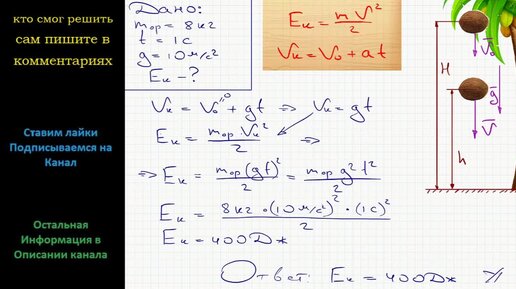 кто смог решить
сам пишите в
комментариях
Ставим лайки
Подписываемся на
Канал
Остальная
Информация в
Описании канала
Дано:
mор = 8 кг
t = 1 с
g = 10 м/с²
Eк - ?
Eк = mV²/2
Vк = V₀ + at
Vк = V₀⁼⁰ + gt => Vк = gt
Eк = mор Vк²/2 =>
=> Eк = mор (gt)²/2 = mор g² t²/2
Eк = 8 кг · (10 м/с²)² · (1 с)²/2
Eк = 400 Дж
Ответ: Eк = 400 Дж
H
h
V₀
g
V